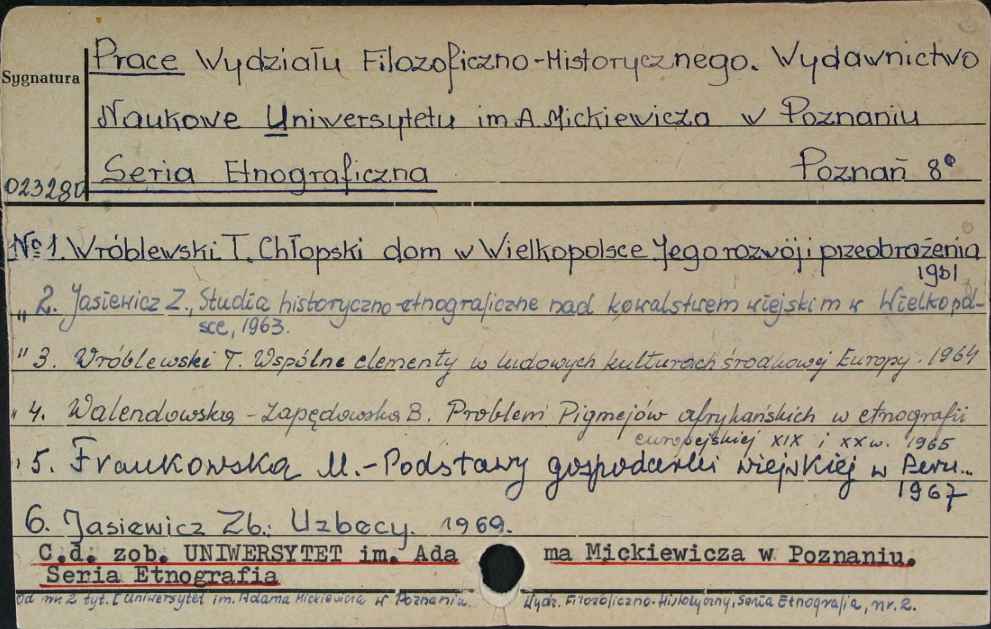 Prace Wydziału Filozoficzno-Historycznego. Wydawnictwo
Sygnatura
Naukowe Uniwersytetu im A. Mickiewicza w Poznaniu
Seria Etnograficzna Poznań 8°
023280
№ 1. Wróblewski T. Chłopski dom w Wielkopolsce Jego rozwój i przeobrażenia
1961
" 2. Jasiewicz Z., Studia historyczno-etnograficzne nad kowalstwem wiejskim w Wielkopol-
sce, 1963.
" 3. Wróblewski T. Wspólne elementy w ludowych kulturach środkowej Europy. 1964
" 4. Walendowska - Zapędowska B. Problem Pigmejów afrykańskich w etnografii
europejskiej XIX i XX w. 1965
" 5. Frankowska M. - Podstawy gospodarki wiejskiej w Peru...
1967
6. Jasiewicz Zb.: Uzbecy. 1969.
C.d. zob. UNIWERSYTET im. Ada ma Mickiewicza w Poznaniu.
Seria Etnografia
Od nr 2 tyt. [Uniwersytet im. Adama Mickiewicza w Poznaniu. Wydz. Filozoficzno-Historyczny, Seria Etnografia, nr. 2.